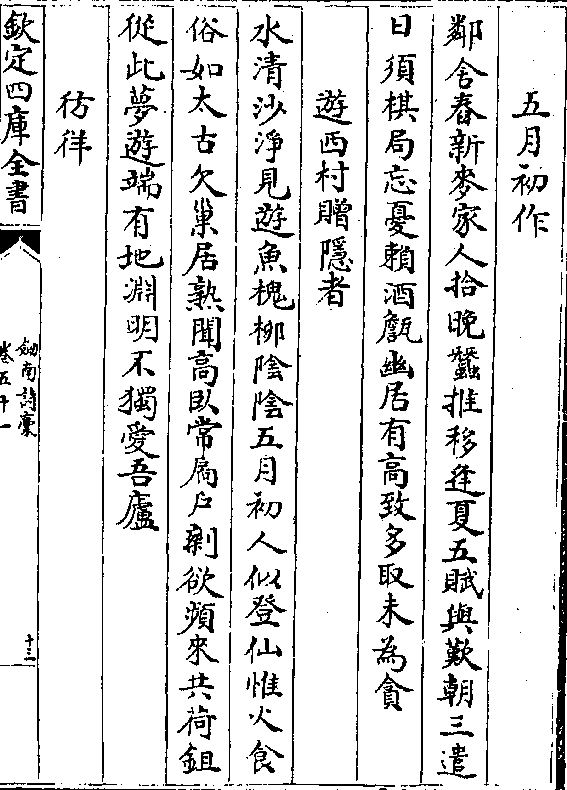 五月初作
鄰舍舂新麥家人拾晚蠶推移逢夏五賦與歎朝三遣
日須棋局忘憂賴酒甔幽居有高致多取未為貪
遊西村贈隱者
水清沙淨見遊魚槐栁陰陰五月初人似登仙惟火食
俗如太古欠巢居熟聞高臥常扃戶剰欲頻來共荷鉏
從此夢遊端有地淵明不獨愛吾廬
彷徉
欽定四庫全書
劔南詩稾
卷五十一
十三